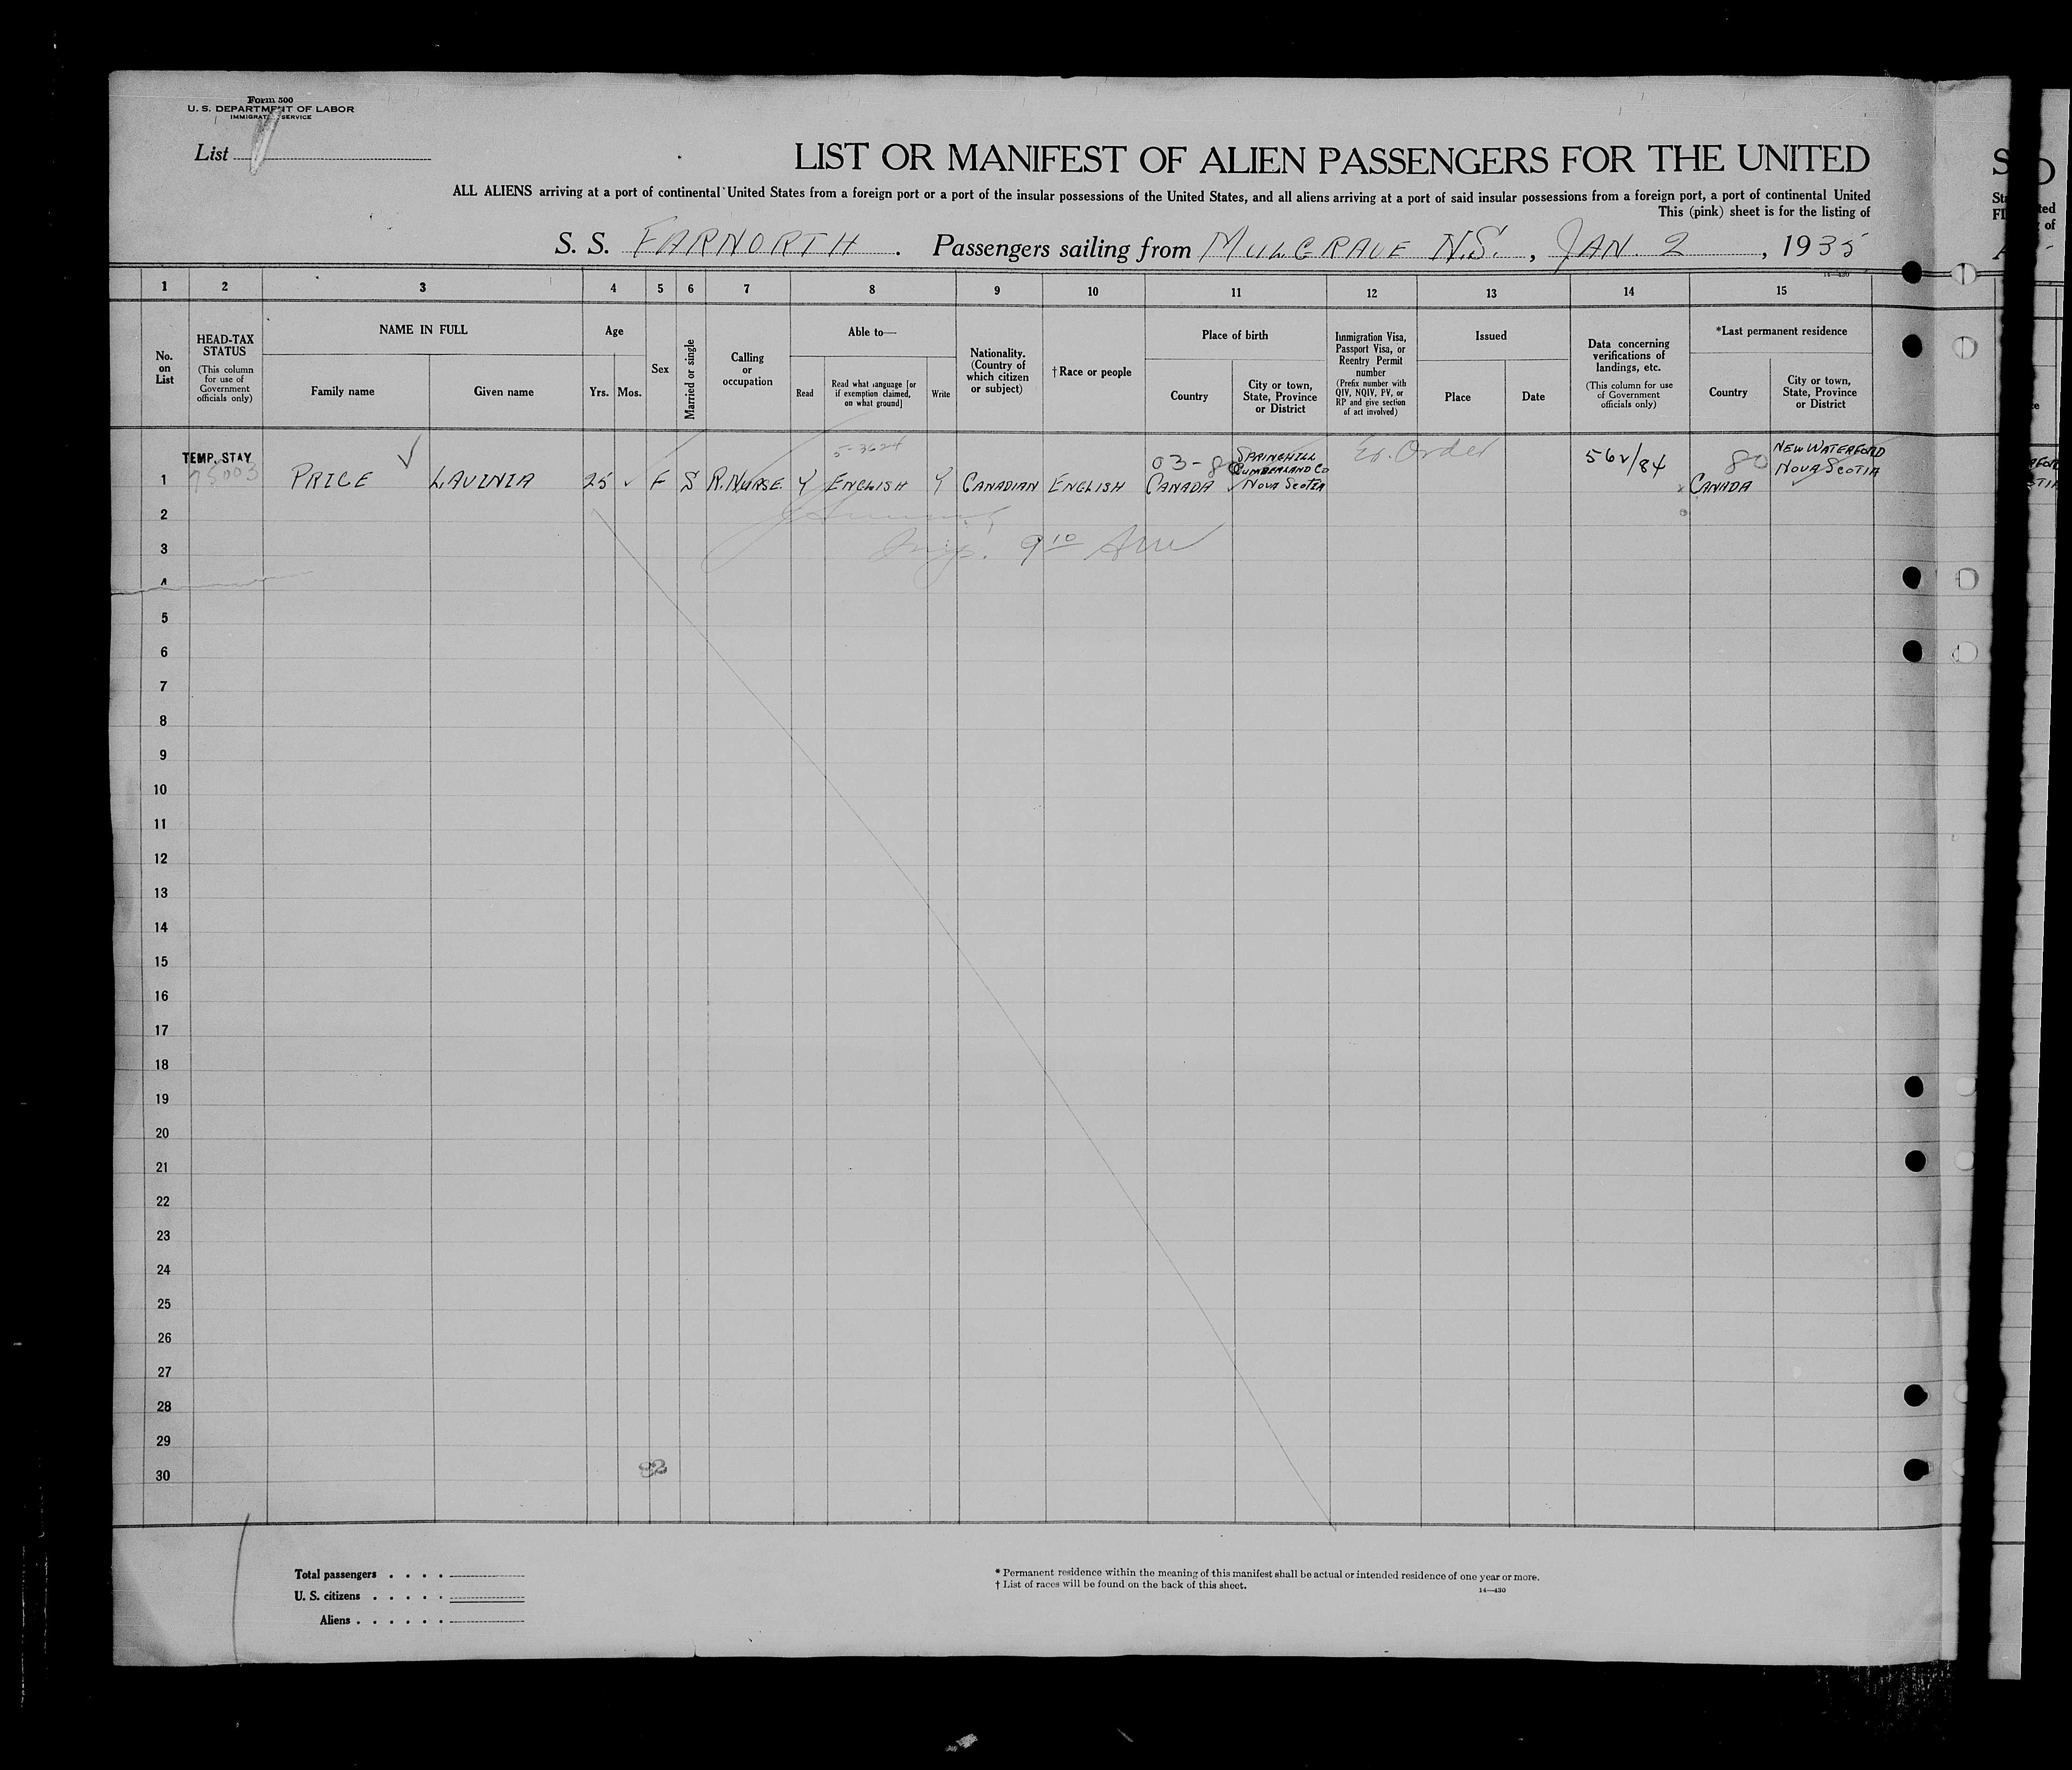 Form 500
U. S. DEPARTMENT OF LABOR
IMMIGRATION SERVICE
List
LIST OR MANIFEST OF ALIEN PASSENGERS FOR THE UNITED
ALL ALIENS arriving at a port of continental United States from a foreign port or a port of the insular possessions of the United States, and all aliens arriving at a port of said insular possessions from a foreign port, a port of continental United
This (pink) sheet is for the listing of
S. S. FARNORTH . Passengers sailing from MULGRAVE N.S. , JAN. 2 , 1935
14—430
1 2 3 4 5 6 7 8 9 10 11 12 13 14 15
No. on List
HEAD-TAX STATUS
(This column for use of Government officials only)
NAME IN FULL
Family name
Given name
Age
Yrs.
Mos.
Sex
Married or single
Calling or occupation
Able to—
Read
Read what language [or if exemption claimed, on what ground]
Write
Nationality. (Country of which citizen or subject)
†Race or people
Place of birth
Country
City or town, State, Province or District
Immigration Visa, Passport Visa, or Reentry Permit number
(Prefix number with QIV, NQIV, PV, or RP and give section of act involved)
Issued
Place
Date
Data concerning verifications of landings, etc.
(This column for use of Government officials only)
*Last permanent residence
Country
City or town, State, Province or District
TEMP. STAY
5-3624
03-80
SPRINGHILL
CUMBERLAND CO
NOVA SCOTIA
Ex. Order
56v/84
80
NEW WATERFORD
NOVA SCOTIA
1 PRICE LAVINIA 25 F S R.NURSE Y ENGLISH Y CANADIAN ENGLISH CANADA CANADA
2
3
9 10
4
5
6
7
8
9
10
11
12
13
14
15
16
17
18
19
20
21
22
23
24
25
26
27
28
29
30
Total passengers
U. S. citizens
Aliens
* Permanent residence within the meaning of this manifest shall be actual or intended residence of one year or more.
† List of races will be found on the back of this sheet.
14—430